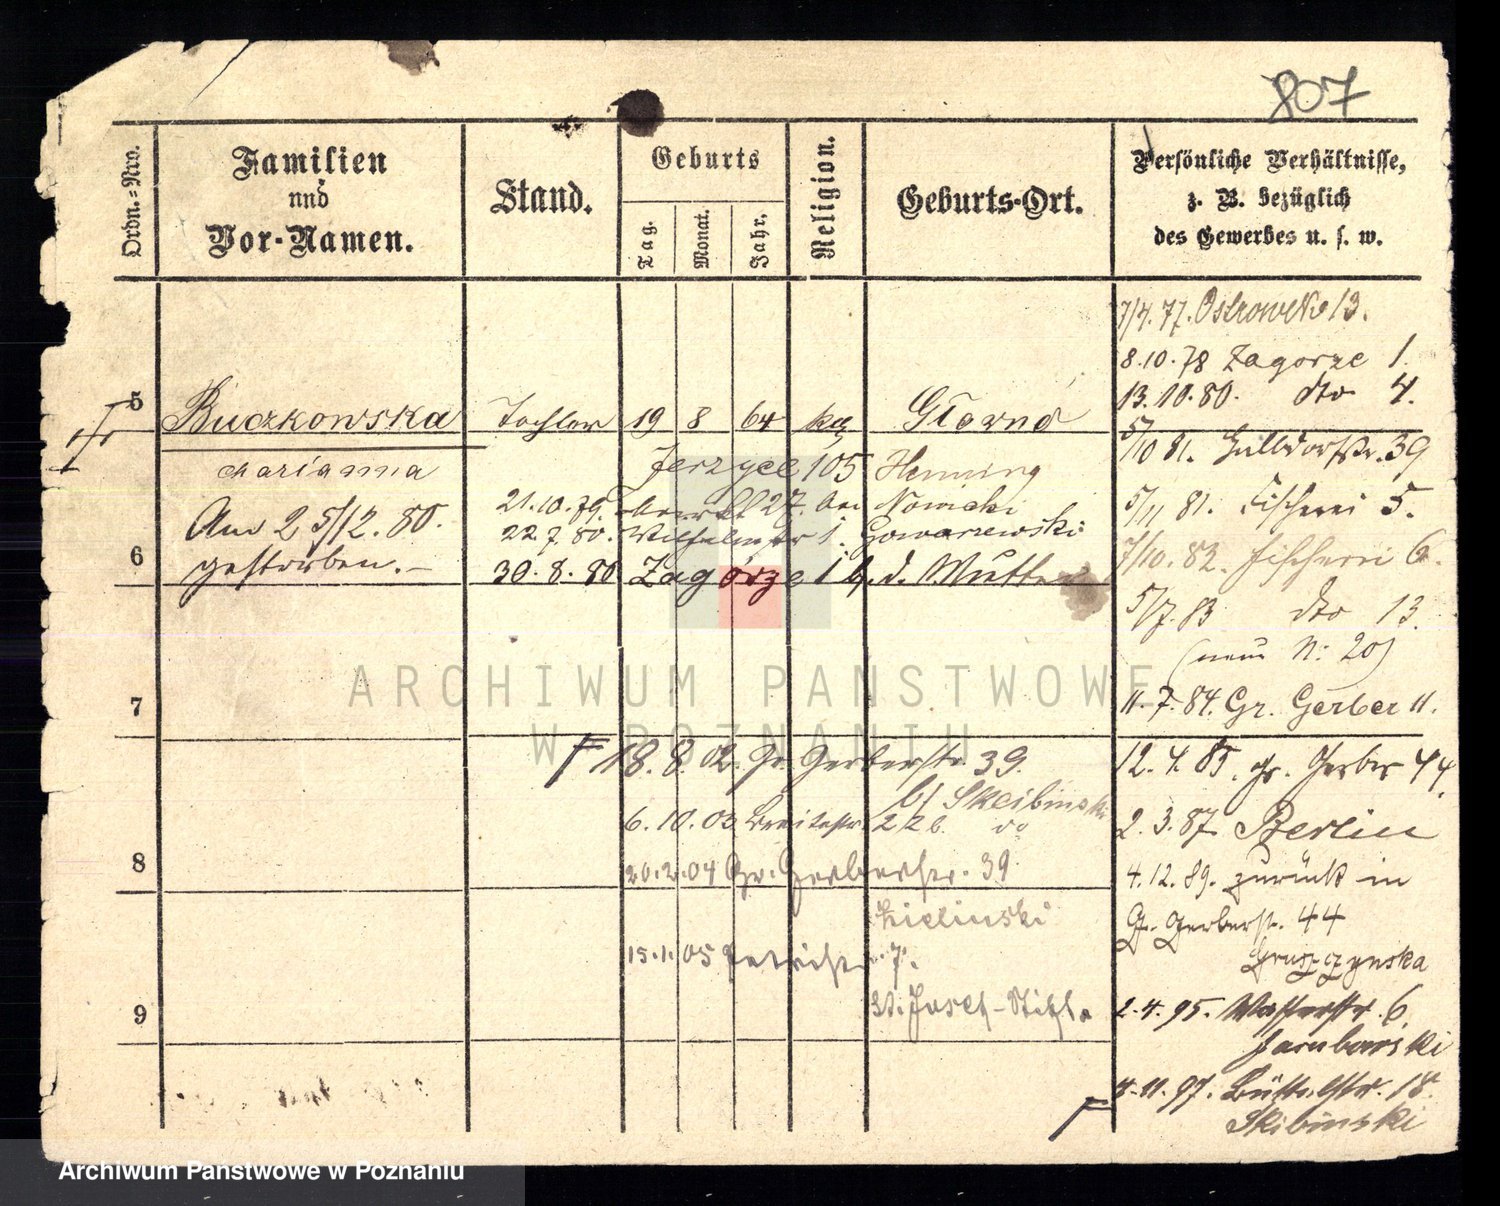 807
Ordn.=Nro.
Familien
und
Vor-Namen.
Stand.
Geburts
Tag.
Monat.
Jahr.
Religion.
Geburts-Ort.
Persönliche Verhältnisse,
z. B. bezüglich
des Gewerbes u. s. w.
5
Buczkowska
Tochter
19
8
64
Marianna
Am 25/12.80.
gestorben.
6
7
8
9
Jerzyce 105 Henning
21.10.79.
27. bei Nowicki
22.7.80. Wilhelmstr 1. Gowarzewski
30.8.80 Zagórze 1 b. d. Mutter
18.8.02. Gr. Gerberstr. 39.
b/ Skibinski
6.10.03 Breitestr. 22 b. do
20.2.04 Gr. Gerberstr. 39
Zielinski
15.1.05
7.
St. Josef-Stift.
7/4.77. Ostrowek 13.
8.10.78 Zagorze 1.
13.10.80. dto 4.
5/10 81. 39
5/11 81. Fischerei 5.
7/10.82. Fischerei 6.
5/7.83 dto 13.
(neue N: 20)
11.7.84. Gr. Gerber 11.
12.4.85. Gr. Gerber 44.
2.3.87 Berlin
4.12.89. zurück in
Gr. Gerberstr. 44
Gruszczynska
2.4.95. Wasserstr. 6.
Jarubowski
4.11.97. Büttelstr. 18.
Skibinski
ARCHIWUM PAŃSTWOWE
W POZNANIU
Archiwum Państwowe w Poznaniu